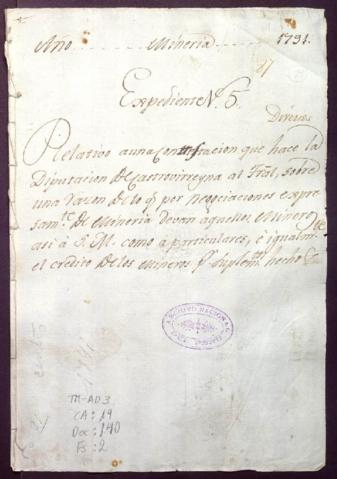 Año Mineria 1791.
Expediente N. 5.
Relativo a una Contestacion que hace la
Diputacion de Castrovirreyna al Tral, sobre
una razon de lo q por negociaciones expre
samte de Mineria devan aquellos Mineros
asi á S. M. como a particulares, é igualmte
el credito de los Mineros p suplemtos hechos
ARCHIVO NACIONAL
TM-AD3
CA: 19
Doc: 140
Fs: 2